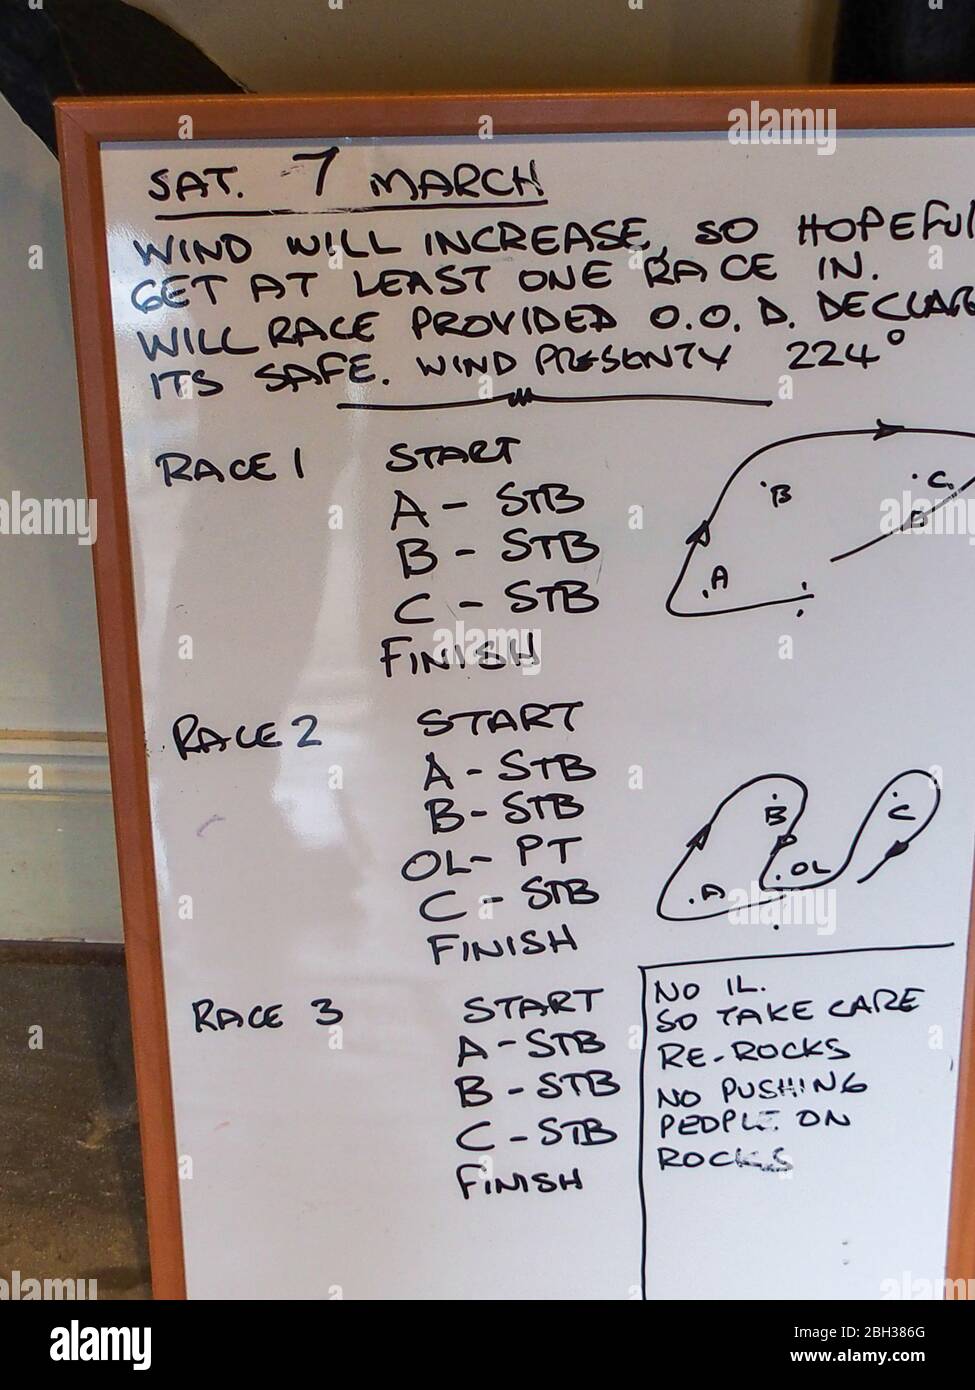 SAT. 7 MARCH
WIND WILL INCREASE, SO HOPEFUL
GET AT LEAST ONE RACE IN.
WILL RACE PROVIDED O.O.D. DECLAR
ITS SAFE. WIND PRESENTY 224°
RACE 1 START
A - STB
B - STB
C - STB
FINISH
B
C.
A
RACE 2 START
A - STB
B - STB
OL - PT
C - STB
FINISH
B
C
A
OL
RACE 3 START
A - STB
B - STB
C - STB
FINISH
NO IL.
SO TAKE CARE
RE-ROCKS
NO PUSHING
PEOPLE ON
ROCKS
alamy
Image ID: 2BH386G
www.alamy.com